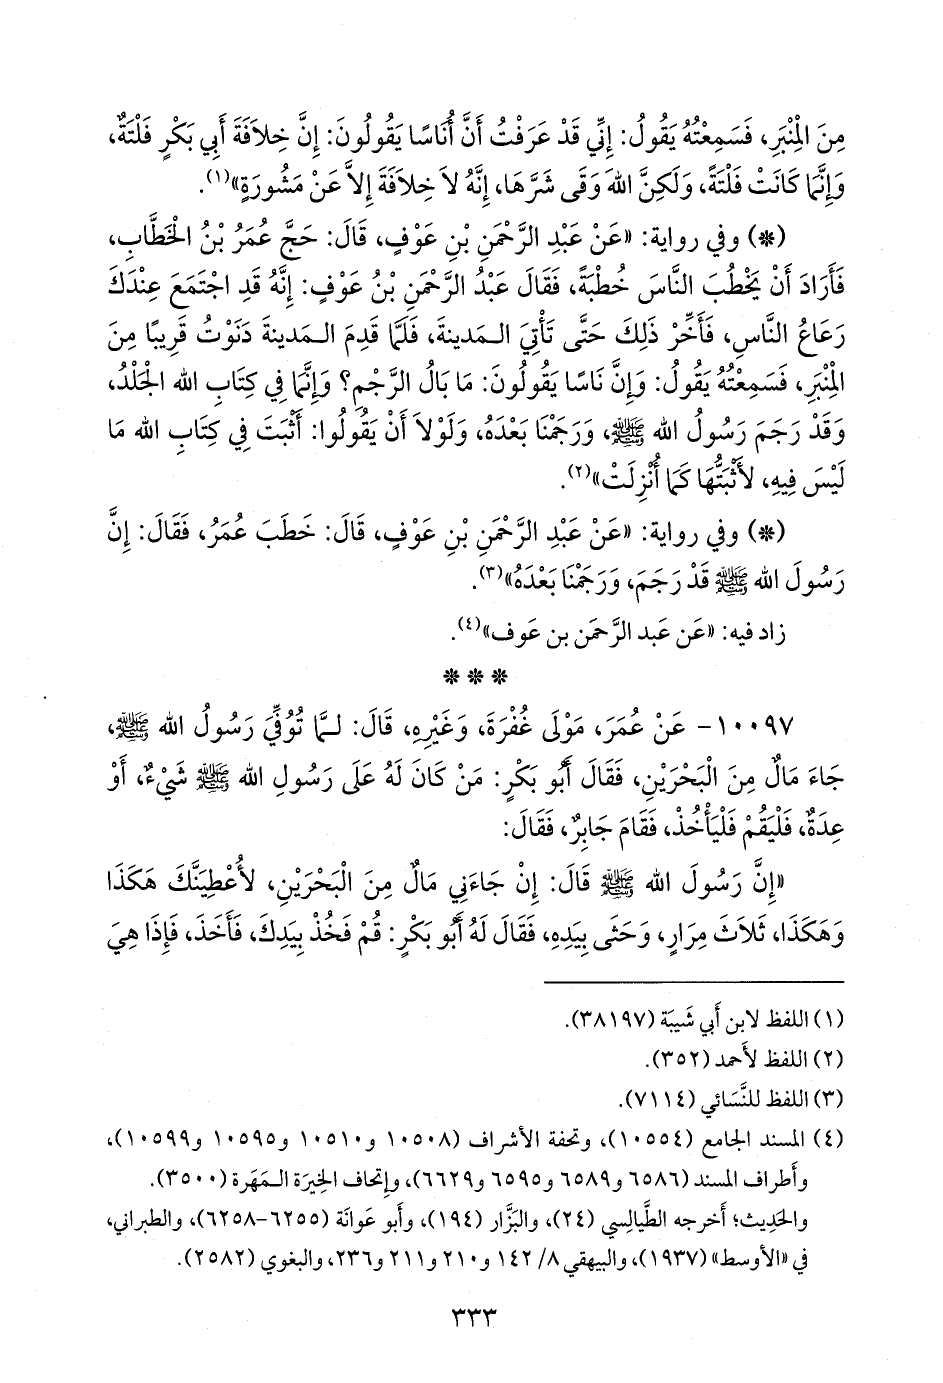 مِنَ الْمِنْبَرِ، فَسَمِعْتُهُ يَقُولُ: إِنِّي قَدْ عَرَفْتُ أَنَّ أُنَاسًا يَقُولُونَ: إِنَّ خِلاَفَةَ أَبِي بَكْرٍ فَلْتَةٌ،
وَإِنَّمَا كَانَتْ فَلْتَةً، وَلَكِنَّ اللهَ وَقَى شَرَّهَا، إِنَّهُ لاَ خِلاَفَةَ إِلاَّ عَنْ مَشُورَةٍ»(١).
(*) وفي رواية: «عَنْ عَبْدِ الرَّحْمَنِ بْنِ عَوْفٍ، قَالَ: حَجَّ عُمَرُ بْنُ الْخَطَّابِ،
فَأَرَادَ أَنْ يَخْطُبَ النَّاسَ خُطْبَةً، فَقَالَ عَبْدُ الرَّحْمَنِ بْنُ عَوْفٍ: إِنَّهُ قَدِ اجْتَمَعَ عِنْدَكَ
رَعَاعُ النَّاسِ، فَأَخِّرْ ذَلِكَ حَتَّى تَأْتِيَ الـمَدينةَ، فَلَمَّا قَدِمَ الـمَدينةَ دَنَوْتُ قَرِيبًا مِنَ
الْمِنْبَرِ، فَسَمِعْتُهُ يَقُولُ: وَإِنَّ نَاسًا يَقُولُونَ: مَا بَالُ الرَّجْمِ؟ وَإِنَّمَا فِي كِتَابِ الله الْجَلْدُ،
وَقَدْ رَجَمَ رَسُولُ الله ﷺ، وَرَجَمْنَا بَعْدَهُ، وَلَوْلاَ أَنْ يَقُولُوا: أَثْبَتَ فِي كِتَابِ الله مَا
لَيْسَ فِيهِ، لأَثْبَتُّهَا كَمَا أُنْزِلَتْ»(٢).
(*) وفي رواية: «عَنْ عَبْدِ الرَّحْمَنِ بْنِ عَوْفٍ، قَالَ: خَطَبَ عُمَرُ، فَقَالَ: إِنَّ
رَسُولَ الله ﷺ قَدْ رَجَمَ، وَرَجَمْنَا بَعْدَهُ»(٣).
زاد فيه: «عَن عَبد الرَّحمَن بن عَوف»(٤).
* * *
١٠٠٩٧- عَنْ عُمَرَ، مَوْلَى غُفْرَةَ، وَغَيْرِهِ، قَالَ: لـمَّا تُوُفِّيَ رَسُولُ الله ﷺ،
جَاءَ مَالٌ مِنَ الْبَحْرَيْنِ، فَقَالَ أَبُو بَكْرٍ: مَنْ كَانَ لَهُ عَلَى رَسُولِ الله ﷺ شَيْءٌ، أَوْ
عِدَةٌ، فَلْيَقُمْ فَلْيَأْخُذْ، فَقَامَ جَابِرٌ، فَقَالَ:
«إِنَّ رَسُولَ الله ﷺ قَالَ: إِنْ جَاءَنِي مَالٌ مِنَ الْبَحْرَيْنِ، لأُعْطِيَنَّكَ هَكَذَا
وَهَكَذَا، ثَلاَثَ مِرَارٍ، وَحَثَى بِيَدِهِ، فَقَالَ لَهُ أَبُو بَكْرٍ: قُمْ فَخُذْ بِيَدِكَ، فَأَخَذَ، فَإِذَا هِيَ
(١) اللفظ لابن أَبي شَيبَة (٣٨١٩٧).
(٢) اللفظ لأَحمد (٣٥٢).
(٣) اللفظ للنَّسَائي (٧١١٤).
(٤) المسند الجامع (١٠٥٥٤)، وتحفة الأشراف (١٠٥٠٨ و١٠٥١٠ و١٠٥٩٥ و١٠٥٩٩)،
وأطراف المسند (٦٥٨٦ و٦٥٨٩ و٦٥٩٥ و٦٦٢٩)، وإتحاف الخِيرَة الـمَهَرة (٣٥٠٠).
والحَدِيث؛ أخرجه الطَّيالِسي (٢٤)، والبَزَّار (١٩٤)، وأبو عَوانَة (٦٢٥٥-٦٢٥٨)، والطبراني،
في «الأوسط» (١٩٣٧)، والبيهقي ٨/ ١٤٢ و٢١٠ و٢١١ و٢٣٦، والبغوي (٢٥٨٢).
٣٣٣